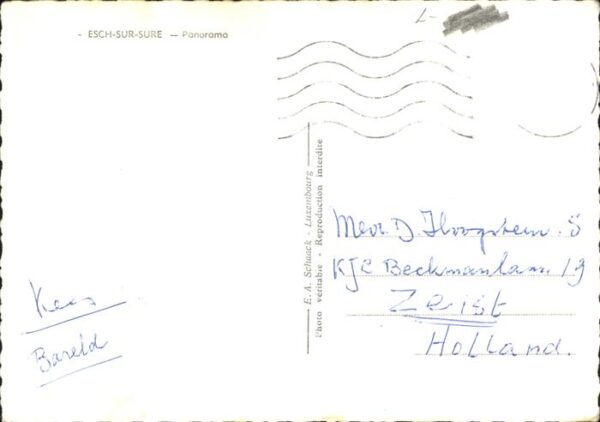 - ESCH-SUR-SURE — Panorama
E. A. Schaack - Luxembourg
Photo véritable - Reproduction interdite
Kees
Bareld
Mevr. D.
KJC Beckmanlaan. 13
Zeist
Holland.